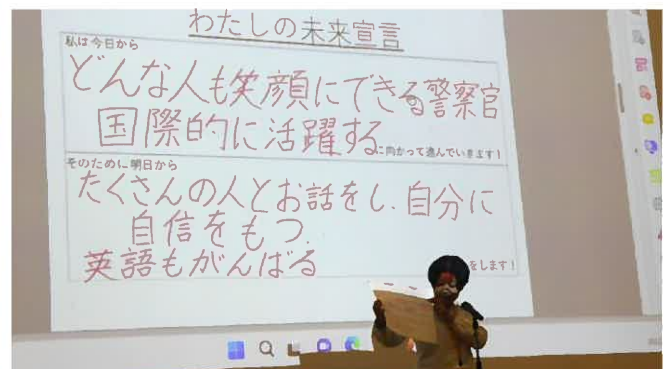 わたしの未来宣言
私は今日から
どんな人も笑顔にできる警察官
国際的に活躍する
に向かって進んでいきます!
そのために明日から
たくさんの人とお話をし、自分に
自信をもつ.
英語もがんばる
をします!